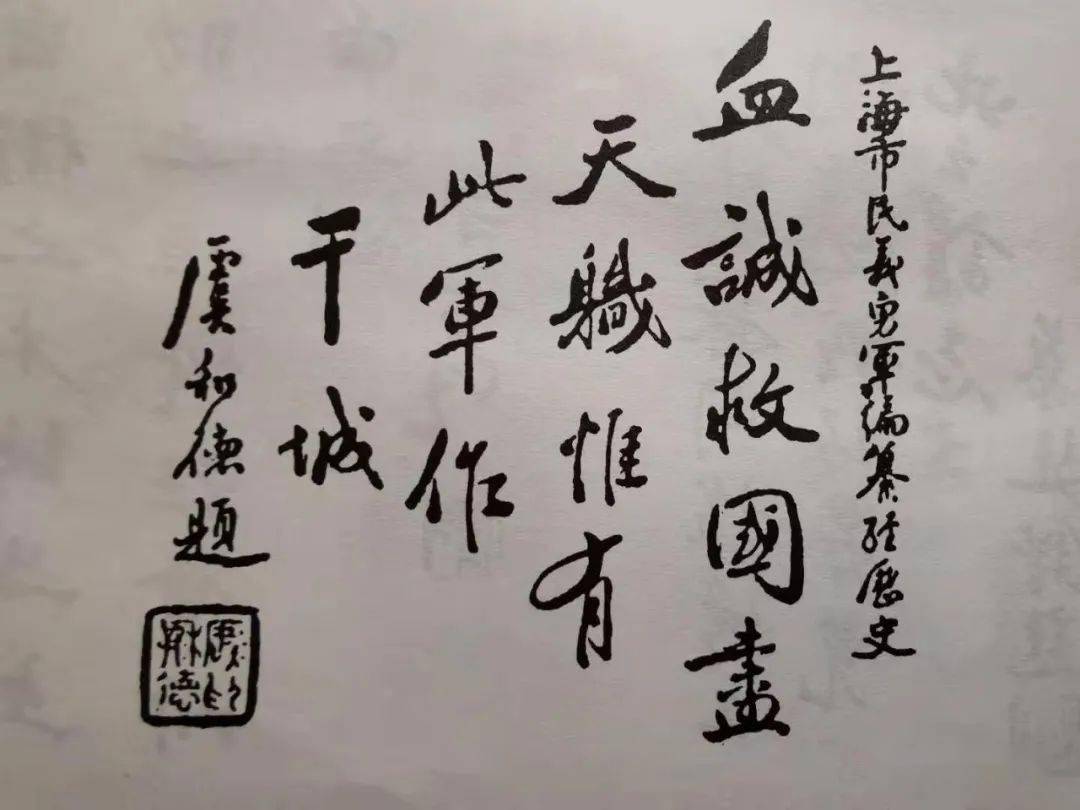 上海市民義勇軍編纂經歷史
血誠救國盡
天職惟有
此軍作
干城
虞和德題